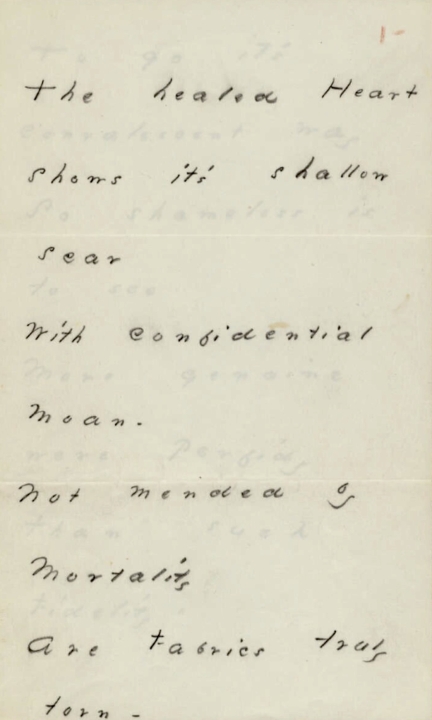 1-
The healed Heart
shows it's shallow
scar
With confidential
moan.
Not mended by
Mortality
Are Fabrics truly
torn -